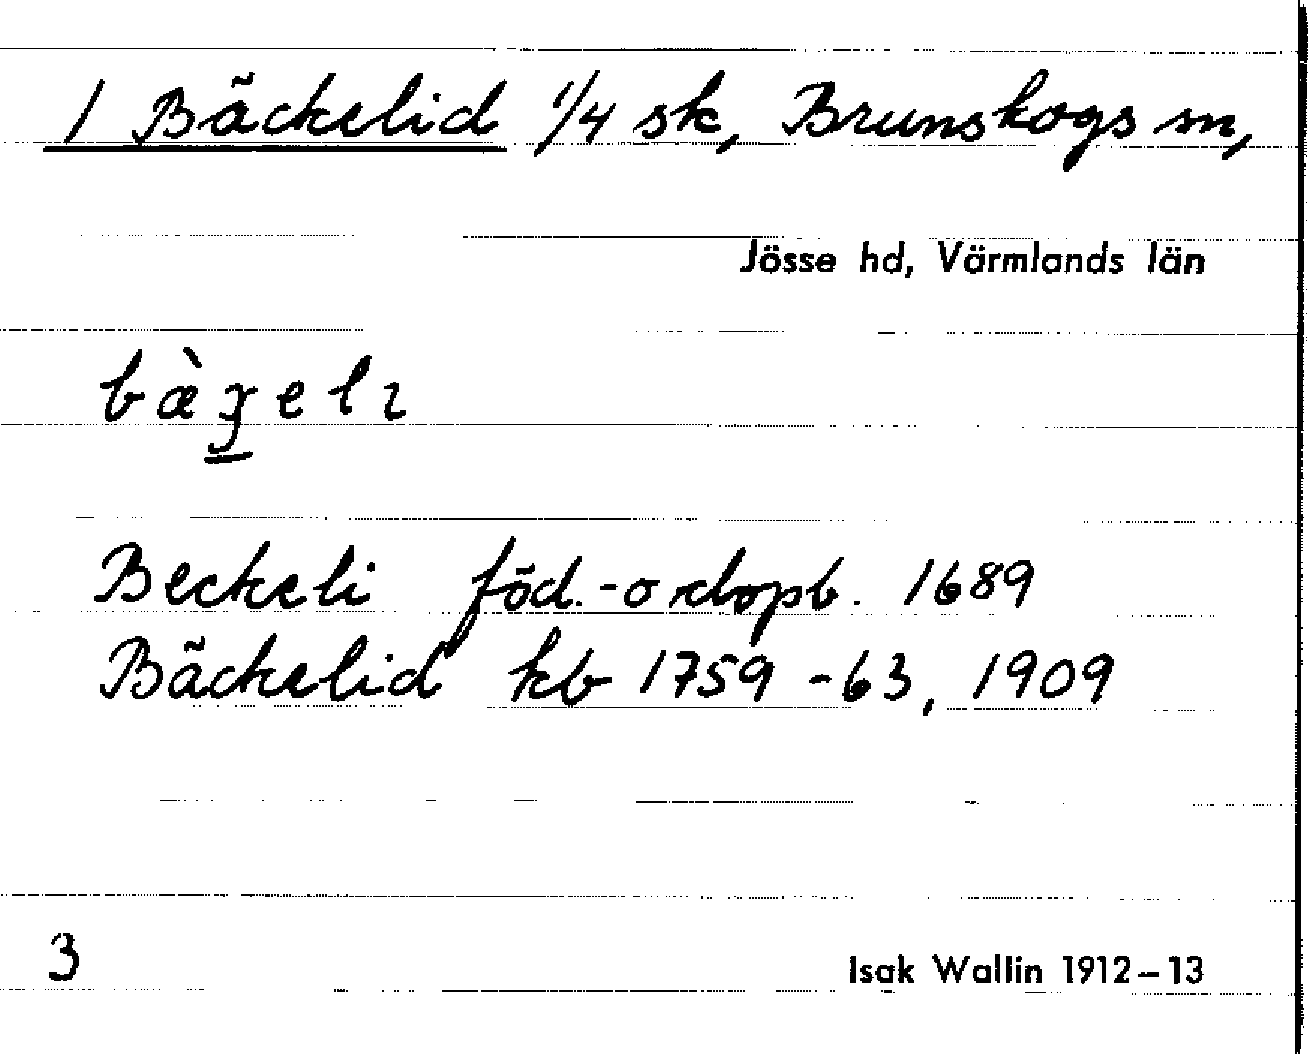 1 Bäckelid 1/4 sk, Brunskogs sn,
Jösse hd, Värmlands län
Beckeli föd.-o dopb. 1689
Bäckelid kb 1759-63, 1909
3
Isak Wallin 1912-13